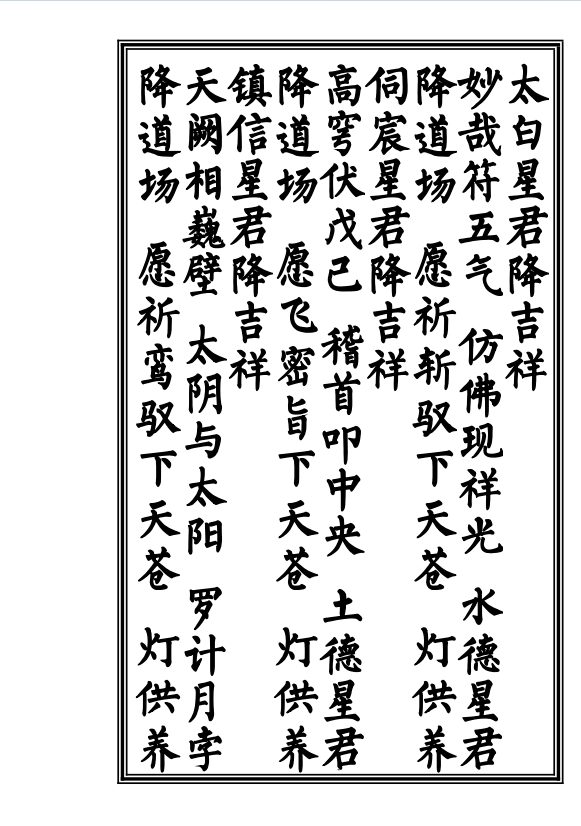 太白星君降吉祥
妙哉符五气 仿佛现祥光 水德星君
降道场 愿祈斩驭下天苍 灯供养
伺宸星君降吉祥
高穹伏戊己 稽首叩中央 土德星君
降道场 愿飞密旨下天苍 灯供养
镇信星君降吉祥
天阙相巍壁 太阴与太阳 罗计月孛
降道场 愿祈鸾驭下天苍 灯供养